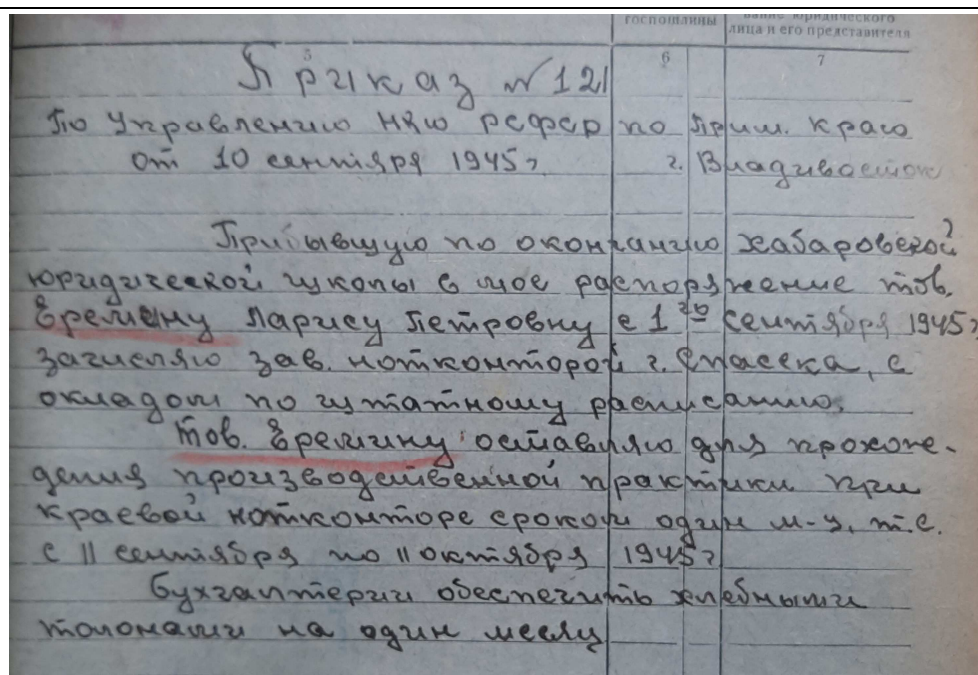 госпошлины
вание юридического
лица и его представителя
5 6 7
Приказ № 121
По Управлению НКЮ РСФСР по Прим. краю
от 10 сентября 1945г. г. Владивосток
Прибывшую по окончанию Хабаровской
юридической школы в мое распоряжение тов.
Еремину Ларису Петровну с 1го сентября 1945г
зачисляю зав. нотконторой г. Спасска, с
окладом по штатному расписанию.
Тов. Еремину оставляю для прохож-
дения производственной практики при
краевой нотконторе сроком один м-ц, т.е.
с 11 сентября по 11 октября 1945г
Бухгалтерии обеспечить хлебными
талонами на один месяц